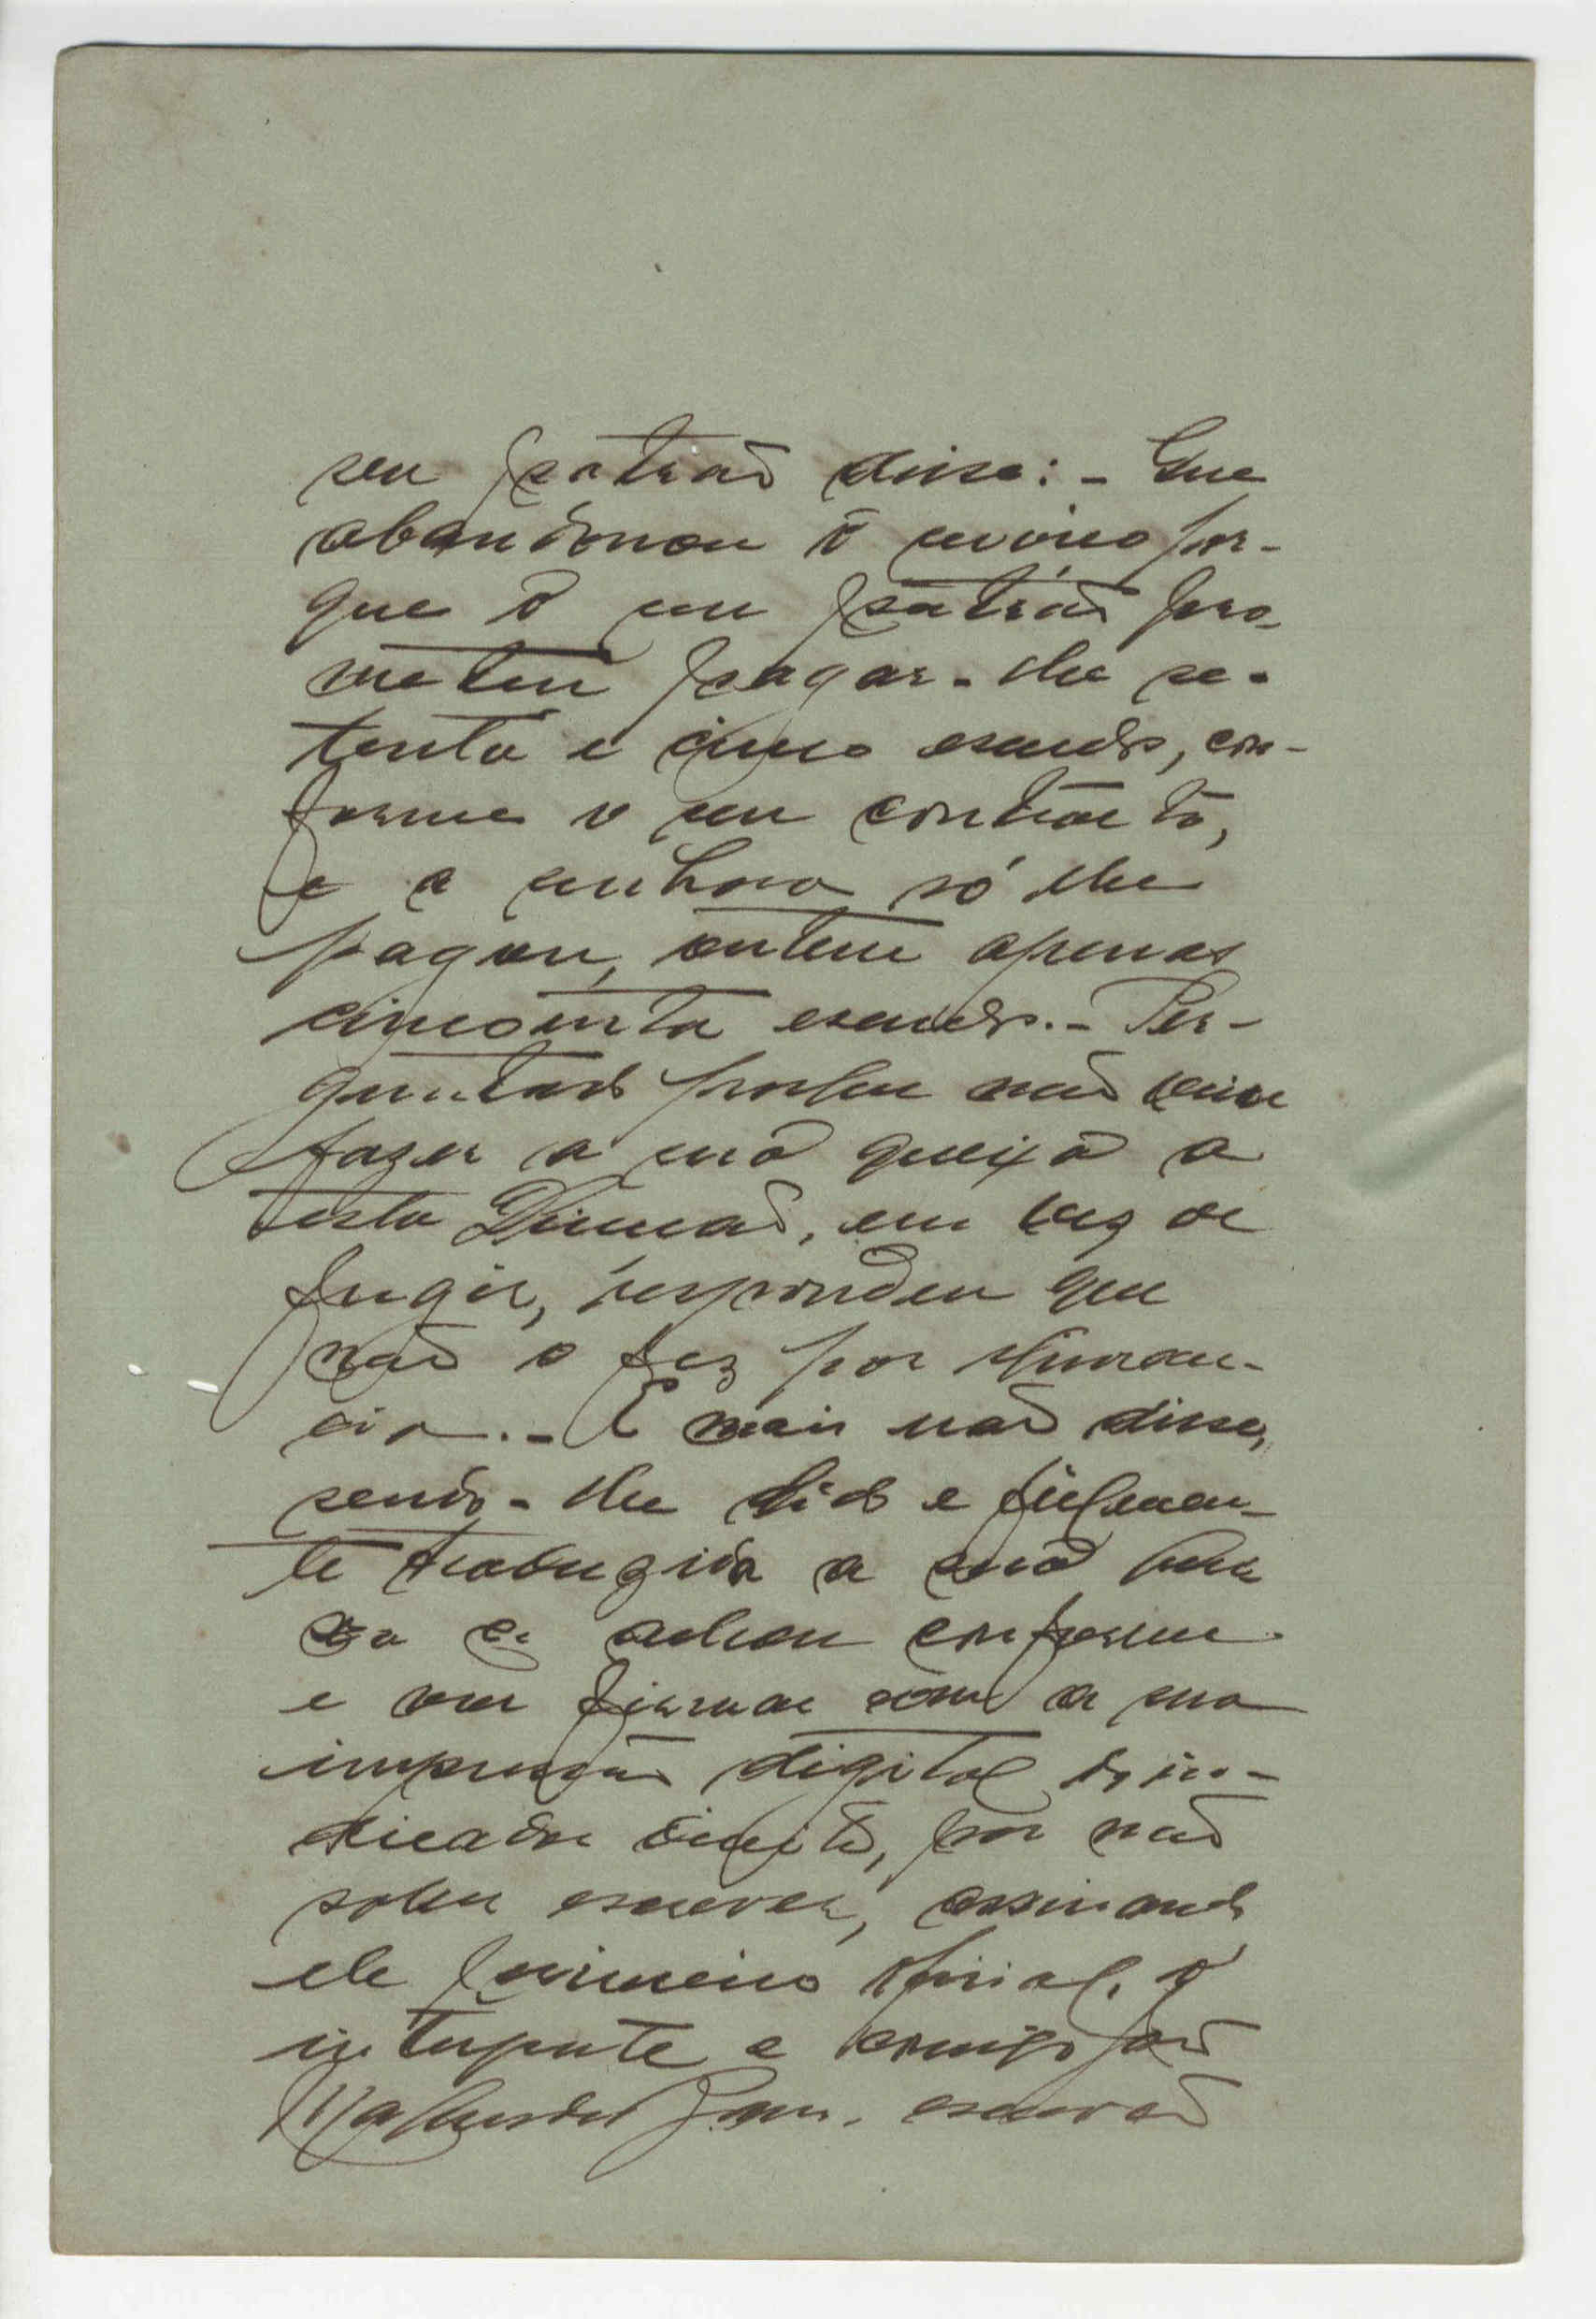 seu patrão disse: - Que
abandonou o serviço por-
que o seu patrão pro-
meteu pagar-lhe se-
tenta e cinco escudos, con-
forme o seu contracto,
e a senhora só lhe
pagou, ontem apenas
cincoenta escudos. - Per-
guntado porque não veio
fazer a sua queixa a
esta Direcção, em vez de
fugir, respondeu que
não o fez por ignoran-
cia. - E mais não disse,
sendo-lhe lido e fielmen-
te traduzido a sua
achou conforme
e vai firmar com a sua
impressão digital do in-
dicador direito, por não
saber escrever, assinando
ele primeiro oficial, o
interprete e comigo
escrivão